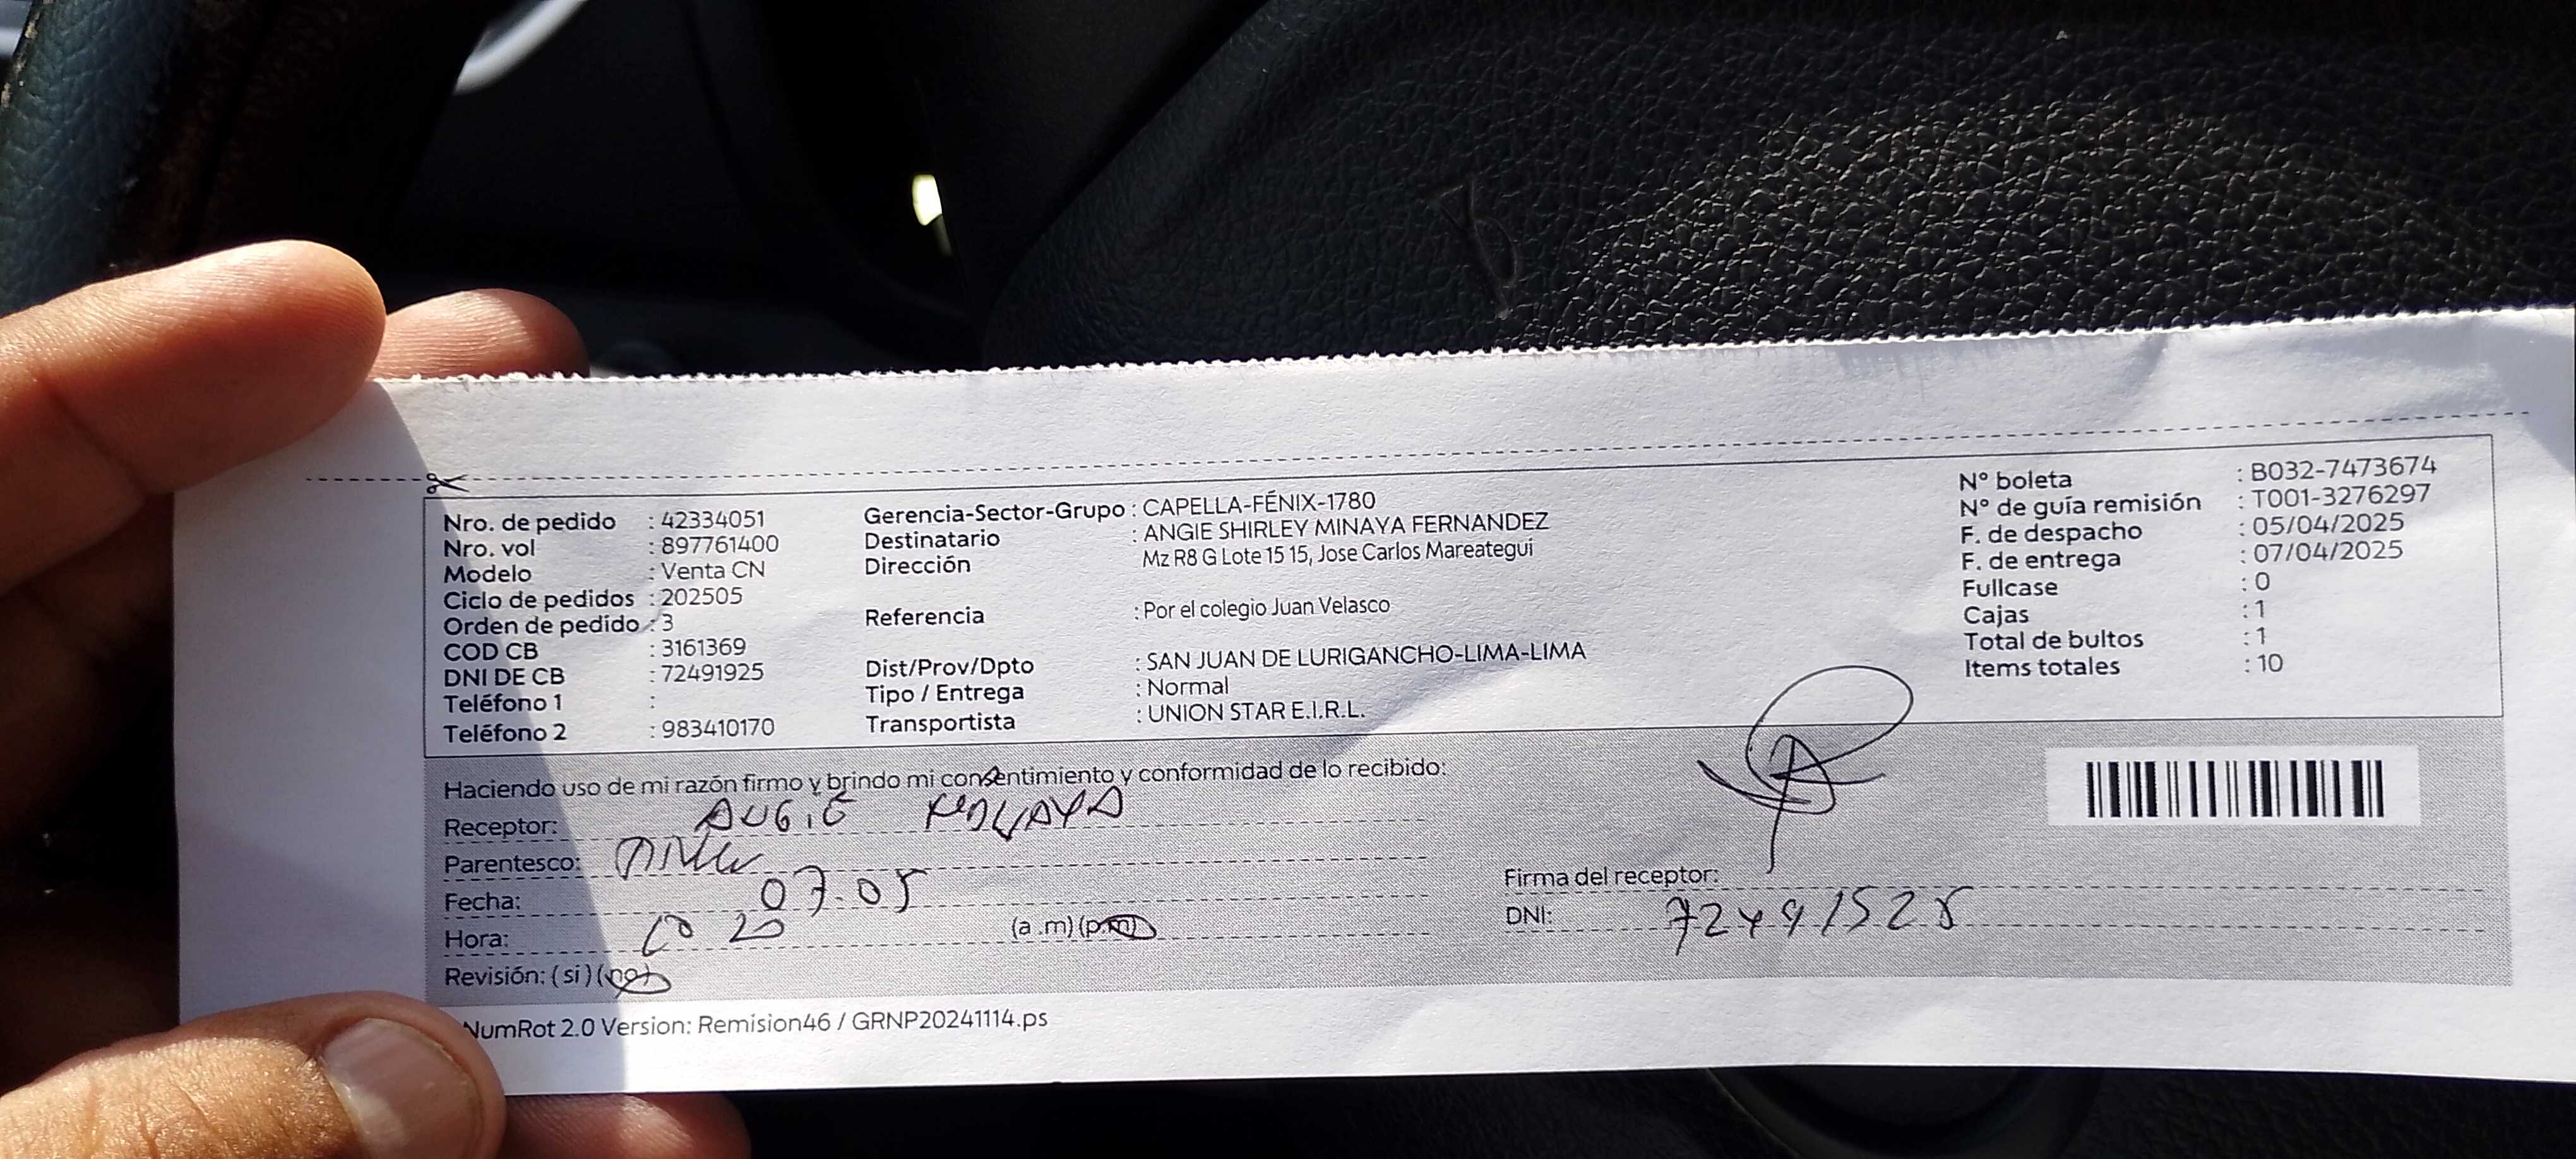 Nro. de pedido : 42334051
Nro. vol : 897761400
Modelo : Venta CN
Ciclo de pedidos : 202505
Orden de pedido : 3
COD CB : 3161369
DNI DE CB : 72491925
Teléfono 1 :
Teléfono 2 : 983410170
Gerencia-Sector-Grupo : CAPELLA-FÉNIX-1780
Destinatario : ANGIE SHIRLEY MINAYA FERNANDEZ
Dirección Mz R8 G Lote 15 15, Jose Carlos Mareategui
Referencia : Por el colegio Juan Velasco
Dist/Prov/Dpto : SAN JUAN DE LURIGANCHO-LIMA-LIMA
Tipo / Entrega : Normal
Transportista : UNION STAR E.I.R.L.
N° boleta : B032-7473674
N° de guía remisión : T001-3276297
F. de despacho : 05/04/2025
F. de entrega : 07/04/2025
Fullcase : 0
Cajas : 1
Total de bultos : 1
Items totales : 10
Haciendo uso de mi razón firmo y brindo mi consentimiento y conformidad de lo recibido:
Receptor: ANGIE
Parentesco:
Fecha: 07.05
Hora: 10 20 (a.m) (p.m)
Revisión: (si) (no)
Firma del receptor:
DNI:
NumRot 2.0 Version: Remision46 / GRNP20241114.ps